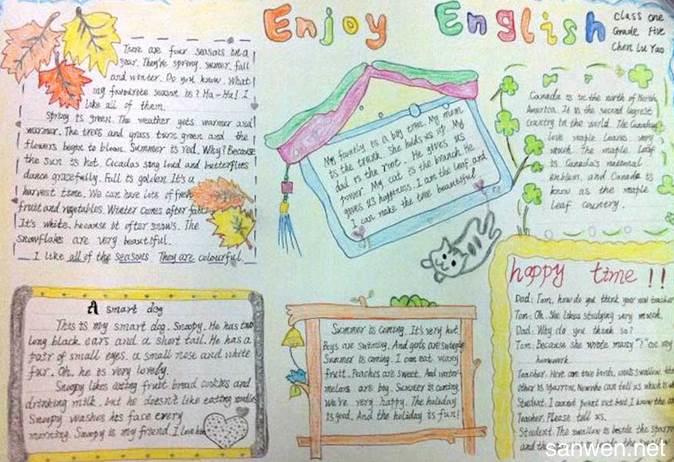 Enjoy English
Class one
Grade Five
Chen Lu Yao
There are four seasons in a
year. They're spring, summer, fall
and winter. Do you know What
my favourite season is? Ha-Ha! I
like all of them.
Spring is green. The weather gets warmer and
warmer. The trees and grass turns green and the
flowers begin to bloom. Summer is red. Why? Because
the sun is hot. Cicadas sing loud and butterflies
dance gracefully. Fall is golden. It's a
harvest time. We can have lots of fresh
fruit and vegetables. Winter comes after fall.
It's white. because it often snows. The
snowflakes are very beautiful.
I like all of the seasons They are colourful.
My family is a big tree. My mum
is the trunk. She holds us up. My
dad is the root. He gives us
power. My cat is the branch. He
gives us happiness. I am the leaf and
I can make the tree beautiful
Canada is in the north of North
America. It is the second largest
country in the world. The
love maple leaves very
much the maple leaf
is Canada's national
emblem, and Canada is
know as the maple
leaf country.
A smart dog
This is my smart dog. Snoopy. He has two
long black ears and a short tail. He has a
pair of small eyes. a small nose and white
fur. Oh, he is very lovely.
Snoopy likes eating fruit bread cookies and
drinking milk. but he doesn't like eating
Snoopy washes his face every
morning. Snoopy is my friend. I love him
Summer is coming. It's very hot.
Boys are swimming. And girls are
Summer is coming. I can eat many
fruit. Peaches are sweet. And water-
melons are big. Summer is coming.
We're very happy. The holiday
is good. And the holiday is fun!
happy time!!
Dad: Tom, how do you think your new teacher
Tom: Oh. She likes studying very much.
Dad: Why do you think so?
Tom: Because she wrote many "?" on my
homework.
Teacher: Here are two birds, one's swallow. the
other is sparrow. Now who can tell us which is
Student: I cannot point out but I know the
Teacher: Please tell us.
Student: The swallow is beside the sparrow
and the
sanwen.net